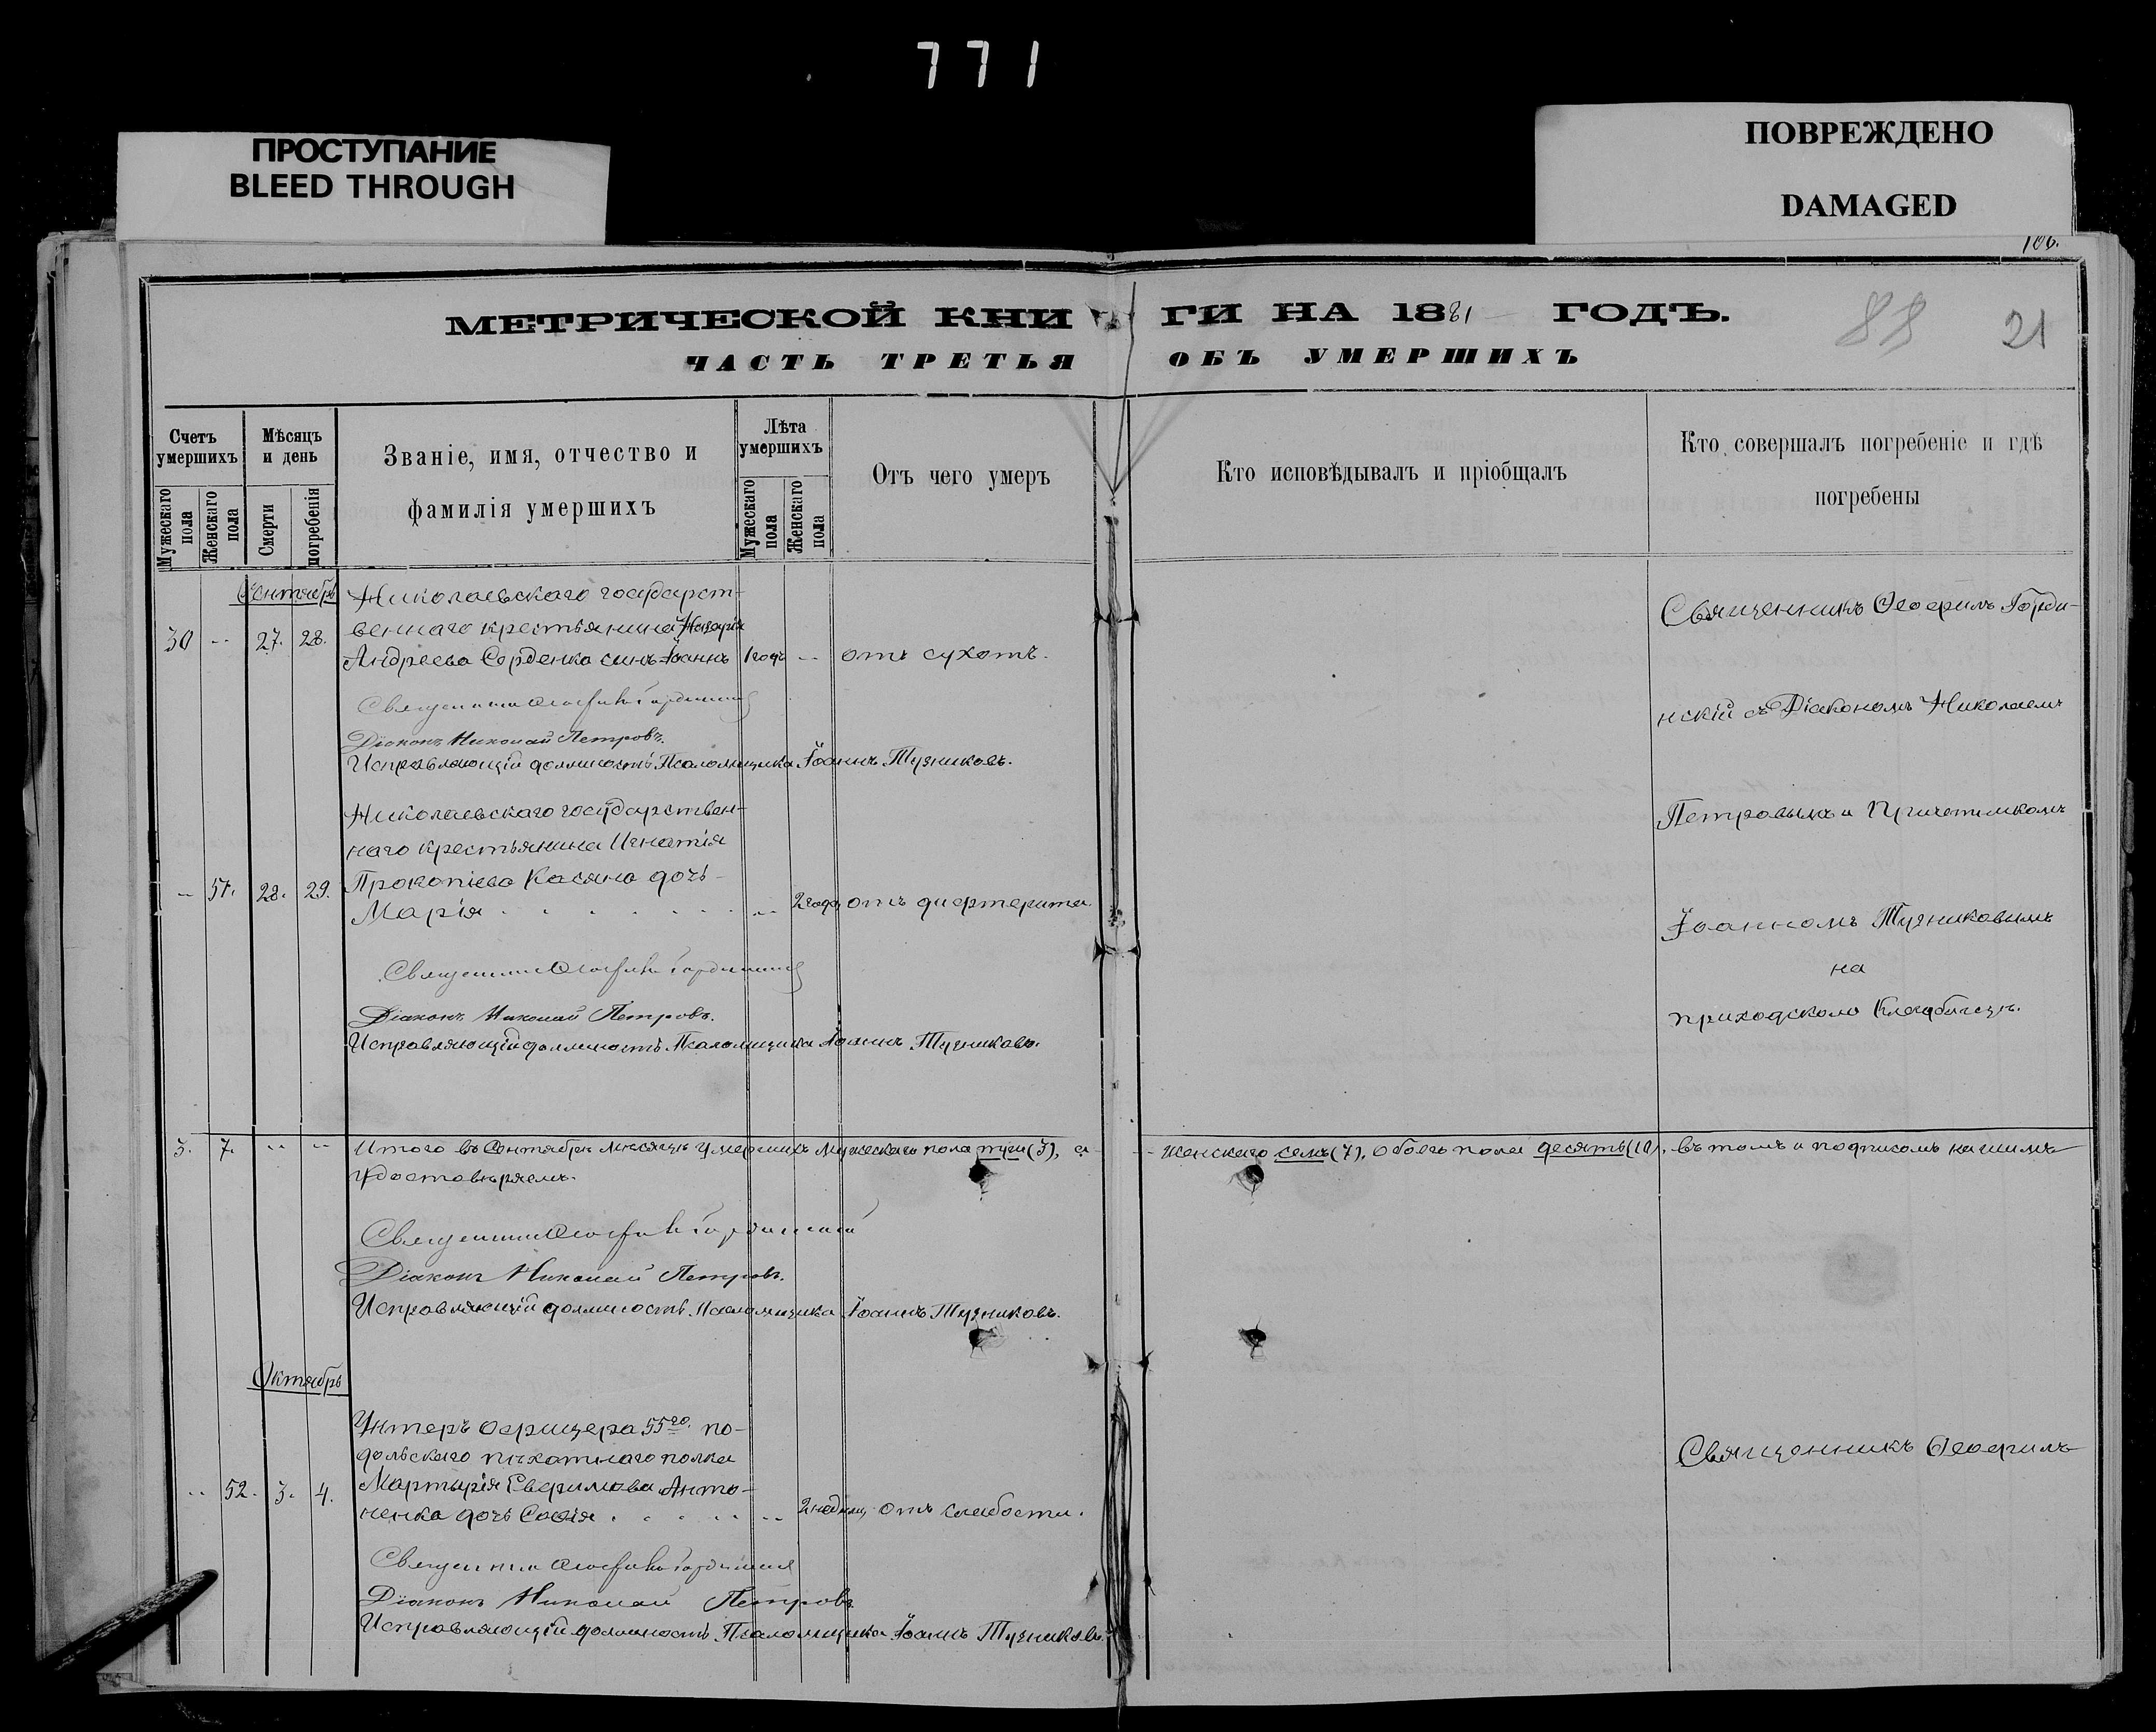 771
ПРОСТУПАНИЕ
BLEED THROUGH
ПОВРЕЖДЕНО
DAMAGED
106.
МЕТРИЧЕСКОЙ КНИ ГИ НА 1881 ГОДЪ.
88 21
ЧАСТЬ ТРЕТЬЯ ОБЪ УМЕРШИХЪ
Счетъ умершихъ
Мужескаго пола
Женскаго пола
Мѣсяцъ и день
Смерти
погребенія
Званіе, имя, отчество и
фамилія умершихъ
Лѣта умершихъ
Мужескаго пола
Женскаго пола
Отъ чего умеръ
Кто исповѣдывалъ и пріобщалъ
Кто совершалъ погребеніе и гдѣ
погребены
Сентябрь
Николаевскаго государст-
веннаго крестьянина Назарія
30 -- 27. 28. Андреева Сорденка сынъ Іоаннъ 1 годъ -- отъ сухотъ.
Священникъ Ѳеофилъ Горди-
нскій съ Діакономъ Николаемъ
Петровымъ и Причетникомъ
Іоанномъ Тузниковымъ
на
приходскомъ Кладбищѣ.
Священникъ Ѳеофилъ Гординскій
Діаконъ Николай Петровъ.
Исправляющій должность Псаломщика Іоаннъ Тузниковъ.
Николаевскаго государствен-
наго крестьянина Игнатія
-- 51. 28. 29. Прокопіева Касяна дочь
Марія -- 2 года отъ дифтерита.
Священникъ Ѳеофилъ Гординскій
Діаконъ Николай Петровъ.
Исправляющій должность Псаломщика Іоаннъ Тузниковъ.
3. 7. -- -- Итого въ Сентябрѣ мѣсяцѣ умершихъ мужескаго пола три (3), а женскаго семь (7), обоего пола десять (10), въ томъ и подписомъ нашимъ
удостовѣряемъ.
Священникъ Ѳеофилъ Гординскій
Діаконъ Николай Петровъ.
Исправляющій должность Псаломщика Іоаннъ Тузниковъ.
Октябрь
Унтеръ офицера 55го. по-
дольскаго пѣхотнаго полка
-- 52. 3. 4. Мартирія Евфимова Анто-
ненка дочь Софія -- 2 недѣли отъ слабости.
Священникъ Ѳеофилъ
Священникъ Ѳеофилъ Гординскій
Діаконъ Николай Петровъ
Исправляющій должность Псаломщика Іоаннъ Тузниковъ.